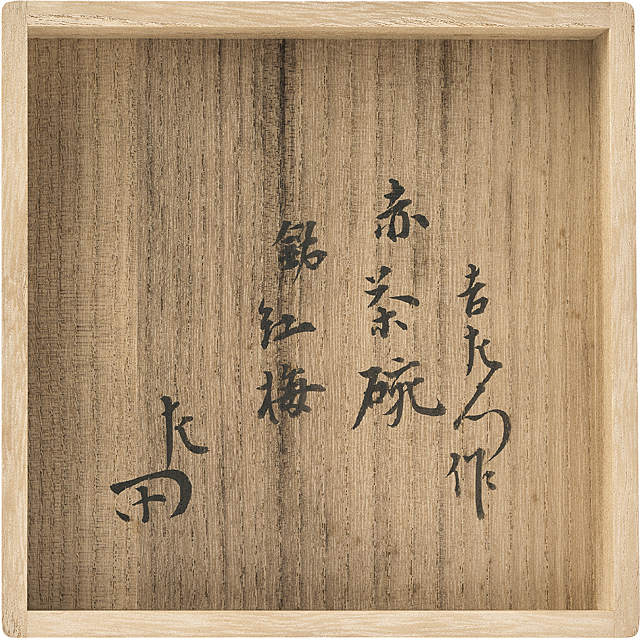 吉左衛門作
赤茶碗
銘 紅梅
左